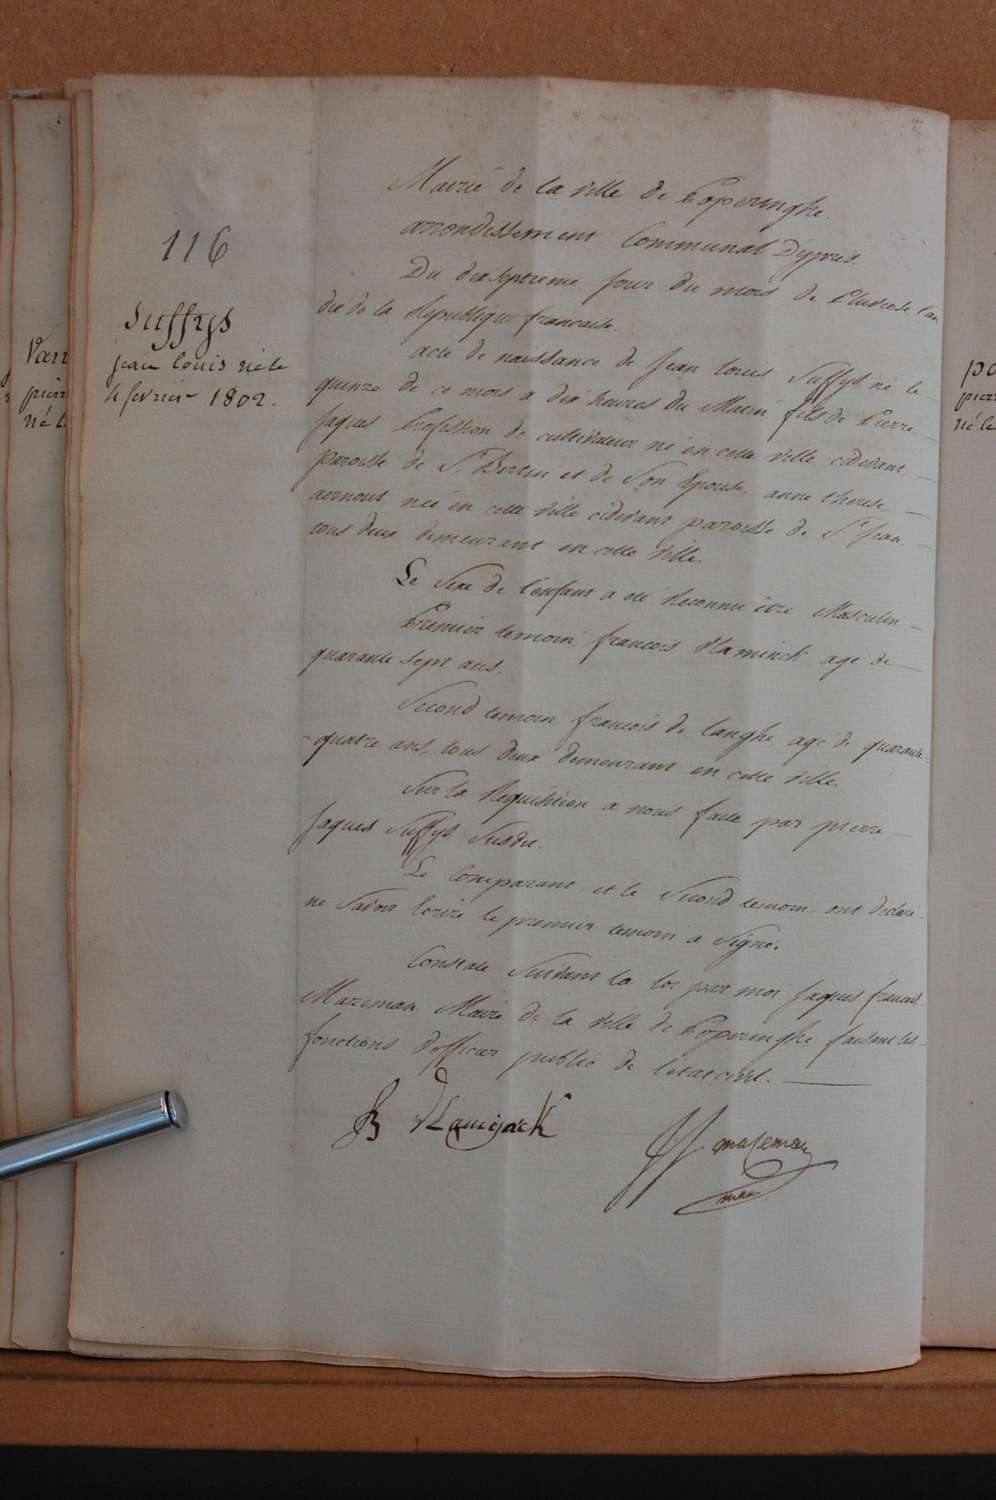 Mairie de la ville de Poperinghe.
arrondissement Communal Dypres.
116
Du dixseptieme Jour du mois de Pluviose l'an
dix de la Republique francaise.
Suffys
jean louis né le
4 fevrier 1802.
acte de naissance de Jean Louis Suffys né le
quinze de ce mois a dix heures du Matin fils de Pierre
Jaques Profession de cultivateur né en cette ville cidevant
paroisse de St Bertin et de Son Epouse, anne therese
aernout née en cette ville cidevant paroisse de St Jean
tous deux demeurant en cette ville.
Le Sexe de l'enfant a été Reconnu être Masculin
Premier temoin francois Vlaminck agé de
quarante sept ans.
Second temoin francois de langhe agé de quarante
quatre ans, tous deux demeurant en cette ville.
Sur la Requisition a nous faite par pierre
Jaques Suffys Susdit.
Le Comparant et le Second temoin ont declaré
ne Savoir Ecrire le premier temoin a Signé.
Constaté Suivant la loi par moi Jaques francois
Mazeman Maire de la ville de Poperinghe faisant les
fonctions d'officier public de l'etat civil.
JJ mazeman
Van
pierr
né l
po
pierr
né le